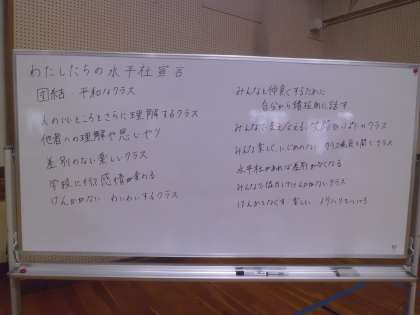 わたしたちの水平社宣言
団結・平和なクラス
人のいいところとさらに理解するクラス
他者への理解や思いやり
差別のない楽しいクラス
学校に行く感情が変わる
けんかがない わいわいするクラス
みんなと仲良くするために
自分から積極的に話す
みんなで支えあえる いっぱいのクラス
みんな楽しく、いじめのない クラス
水平社があれば差別がなくなる
みんなで協力してけんかがないクラス
けんかをなくす 楽しい